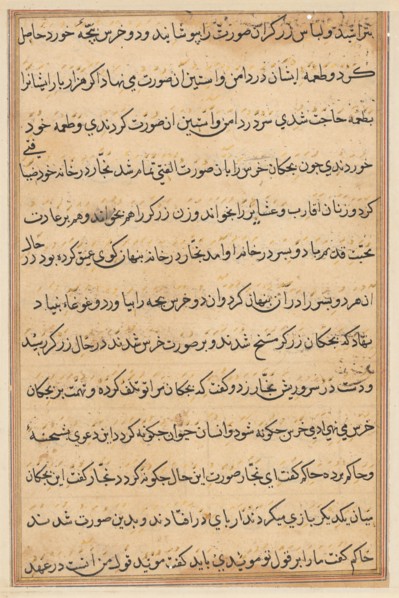 بتراشد و لباس زرگر ان صورت را بپوشانید و دو خرس بچهٔ خورد حاصل
کرد و طعمه ایشان در دامن و استین ان صورت می نهاد اکر هزار بار ایشانرا
بطعمه حاجت شدی سر در دامن و استین ان صورت کردندی و طعمه خود
خوردندی چون بچکان خرس را بان صورت الفتی تمام شد نجار در خانه خود ضیافتی
کرد و زنان اقارب و عشایر را بخواند و زن زرکر را هم بخواند و هم بر عادت
محبت قدیم با دو پسر در خانه او امد نجار در خانه پنهان کوی عمیق کرده بود در حال
ان هر دو پسر را در ان پنهان کرد و ان دو خرس بچه را بیاورد و غوغا بنیاد
نهاد که بچکان زرکر مسخ شدند و بر صورت خرس شدند در حال زرکر برسید
و دست در سر و ریش نجار زد و کفت که بچکان مرا تو تلف کرده و تهمت بر بچکان
خرس می نهی ادمی خرس چکونه شود و انسان حیوان چکونه کردد این دعوی بشحنهٔ
و حاکم برده حاکم کفت ای نجار صورت این حال چکونه کردد نجار کفت این بچکان
میان یکدیکر بازی میکردند از پای در افتادند و بدین صورت شدند
حاکم کفت ما را بر قول تو مویدی باید کفت موید قول من انست در عهد